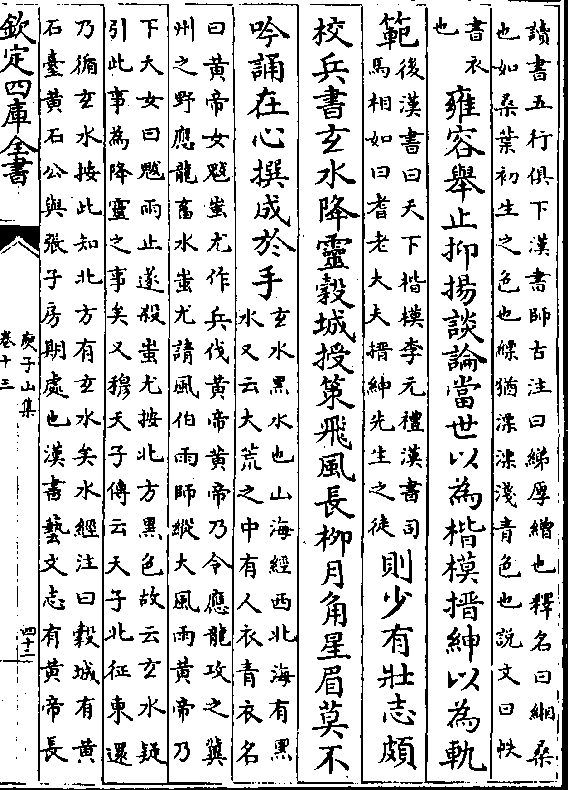 讀書五行俱下漢書師古注曰綈厚繒也釋名曰緗桑
也如桑葉初生之色也縹猶漂漂淺青色也說文曰帙
書衣
也
雍容舉止抑揚談論當世以為楷模搢紳以為軌
範
後漢書曰天下楷模李元禮漢書司
馬相如曰耆老大夫搢紳先生之徒
則少有壯志頗
校兵書玄水降靈穀城授策飛風長柳月角星眉莫不
吟誦在心撰成於手
玄水黑水也山海經西北海有黑
水又云大荒之中有人衣青衣名
曰黃帝女魃蚩尤作兵伐黃帝黃帝乃令應龍攻之冀
州之野應龍畜水蚩尤請風伯雨師縱大風雨黃帝乃
下天女曰魃雨止遂殺蚩尤按北方黑色故云玄水疑
引此事為降靈之事矣又穆天子傳云天子北征東還
乃循玄水按此知北方有玄水矣水經注曰穀城有黃
石臺黃石公與張子房期處也漢書藝文志有黃帝長
欽定四庫全書
庾子山集
卷十三
四十二